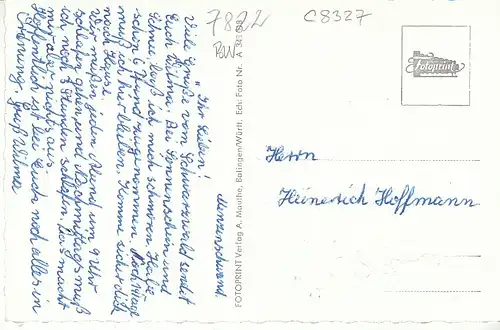 7822
BW
C8327
Fotoprint
Menzenschwand.
"Ihr Lieben!
Viele Grüße vom Schwarzwald sendet
Euch Wilma. Bei Sonnenschein und
Schnee läßt sich mein schweres Herz
schon 6 Pfund zugenommen. Noch 14 Tage
muß ich hier bleiben. Komme sicher dick
nach Hause.
Wir müssen jeden Abend um 9 Uhr
schlafen gehen und Nachmittags muß
ich noch 2 Stunden schlafen. Das macht
mir aber nichts aus.
Hoffentlich ist bei Euch noch alles in
Ordnung. Gruß Wilma
FOTOPRINT Verlag A. Mauthe, Balingen/Württ. Ech. Foto Nr. A
Herrn
Heinerich Hoffmann